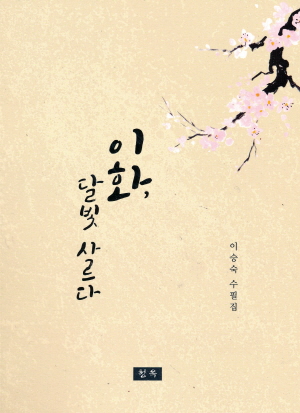 이화,
달빛 사르다
이승숙 수필집
청옥